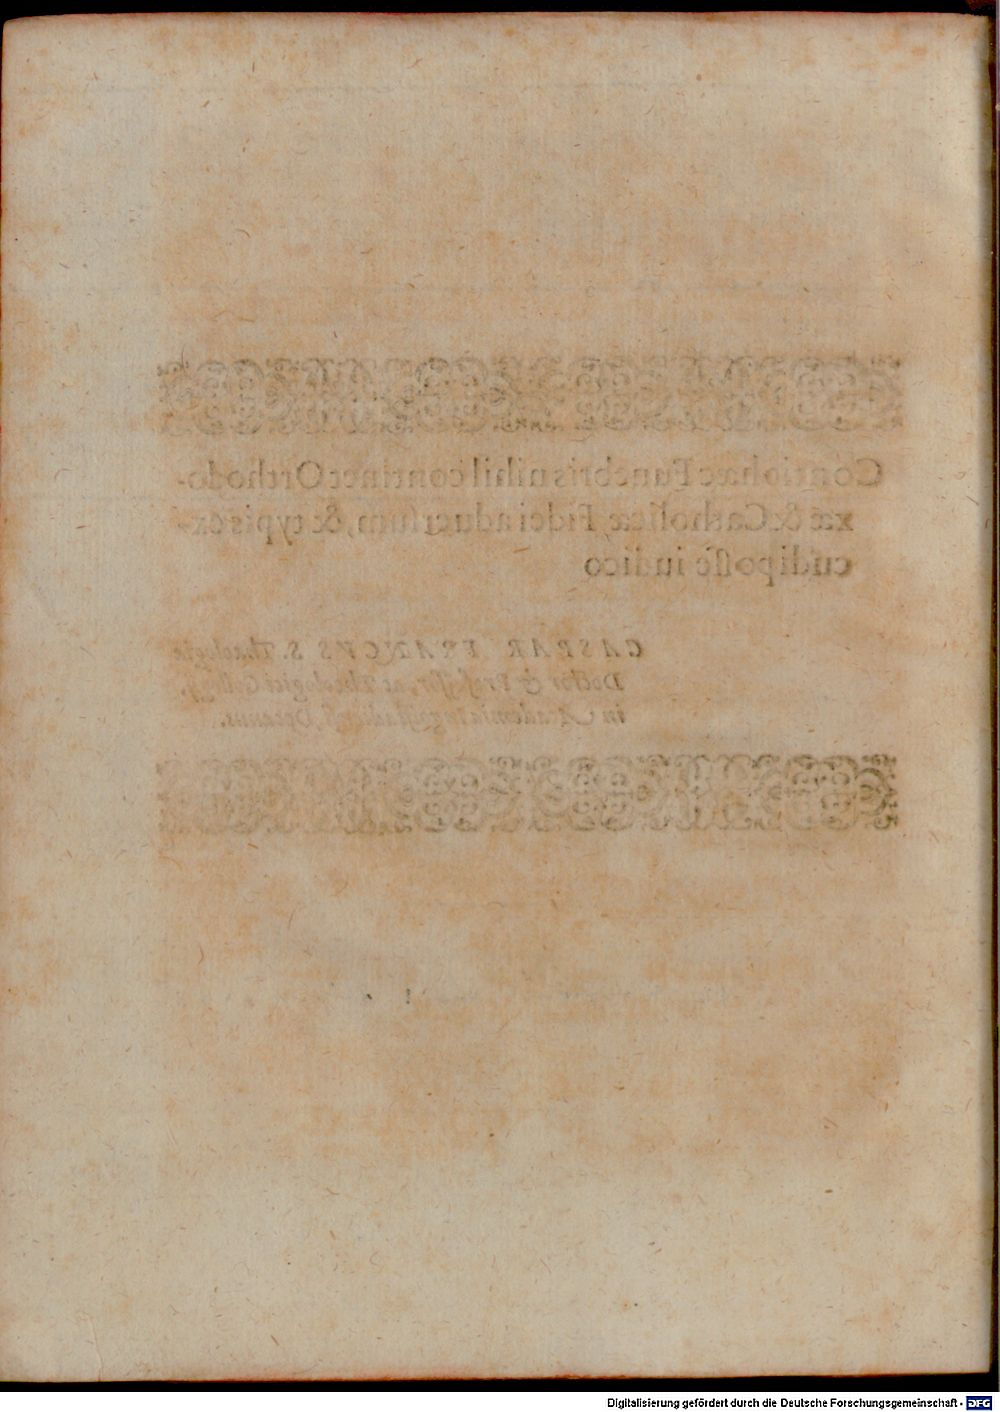 Contio hæc Funebris nihil continet Orthodo-
xæ & Catholicæ Fidei aduersum, & typis ex-
cudi posse iudico
CASPAR FRANCVS S. Theologiæ
Doctor & Professor, ac Theologici Collegij,
in Academia Ingolstadiensi, Decanus.
Digitalisierung gefördert durch die Deutsche Forschungsgemeinschaft - DFG